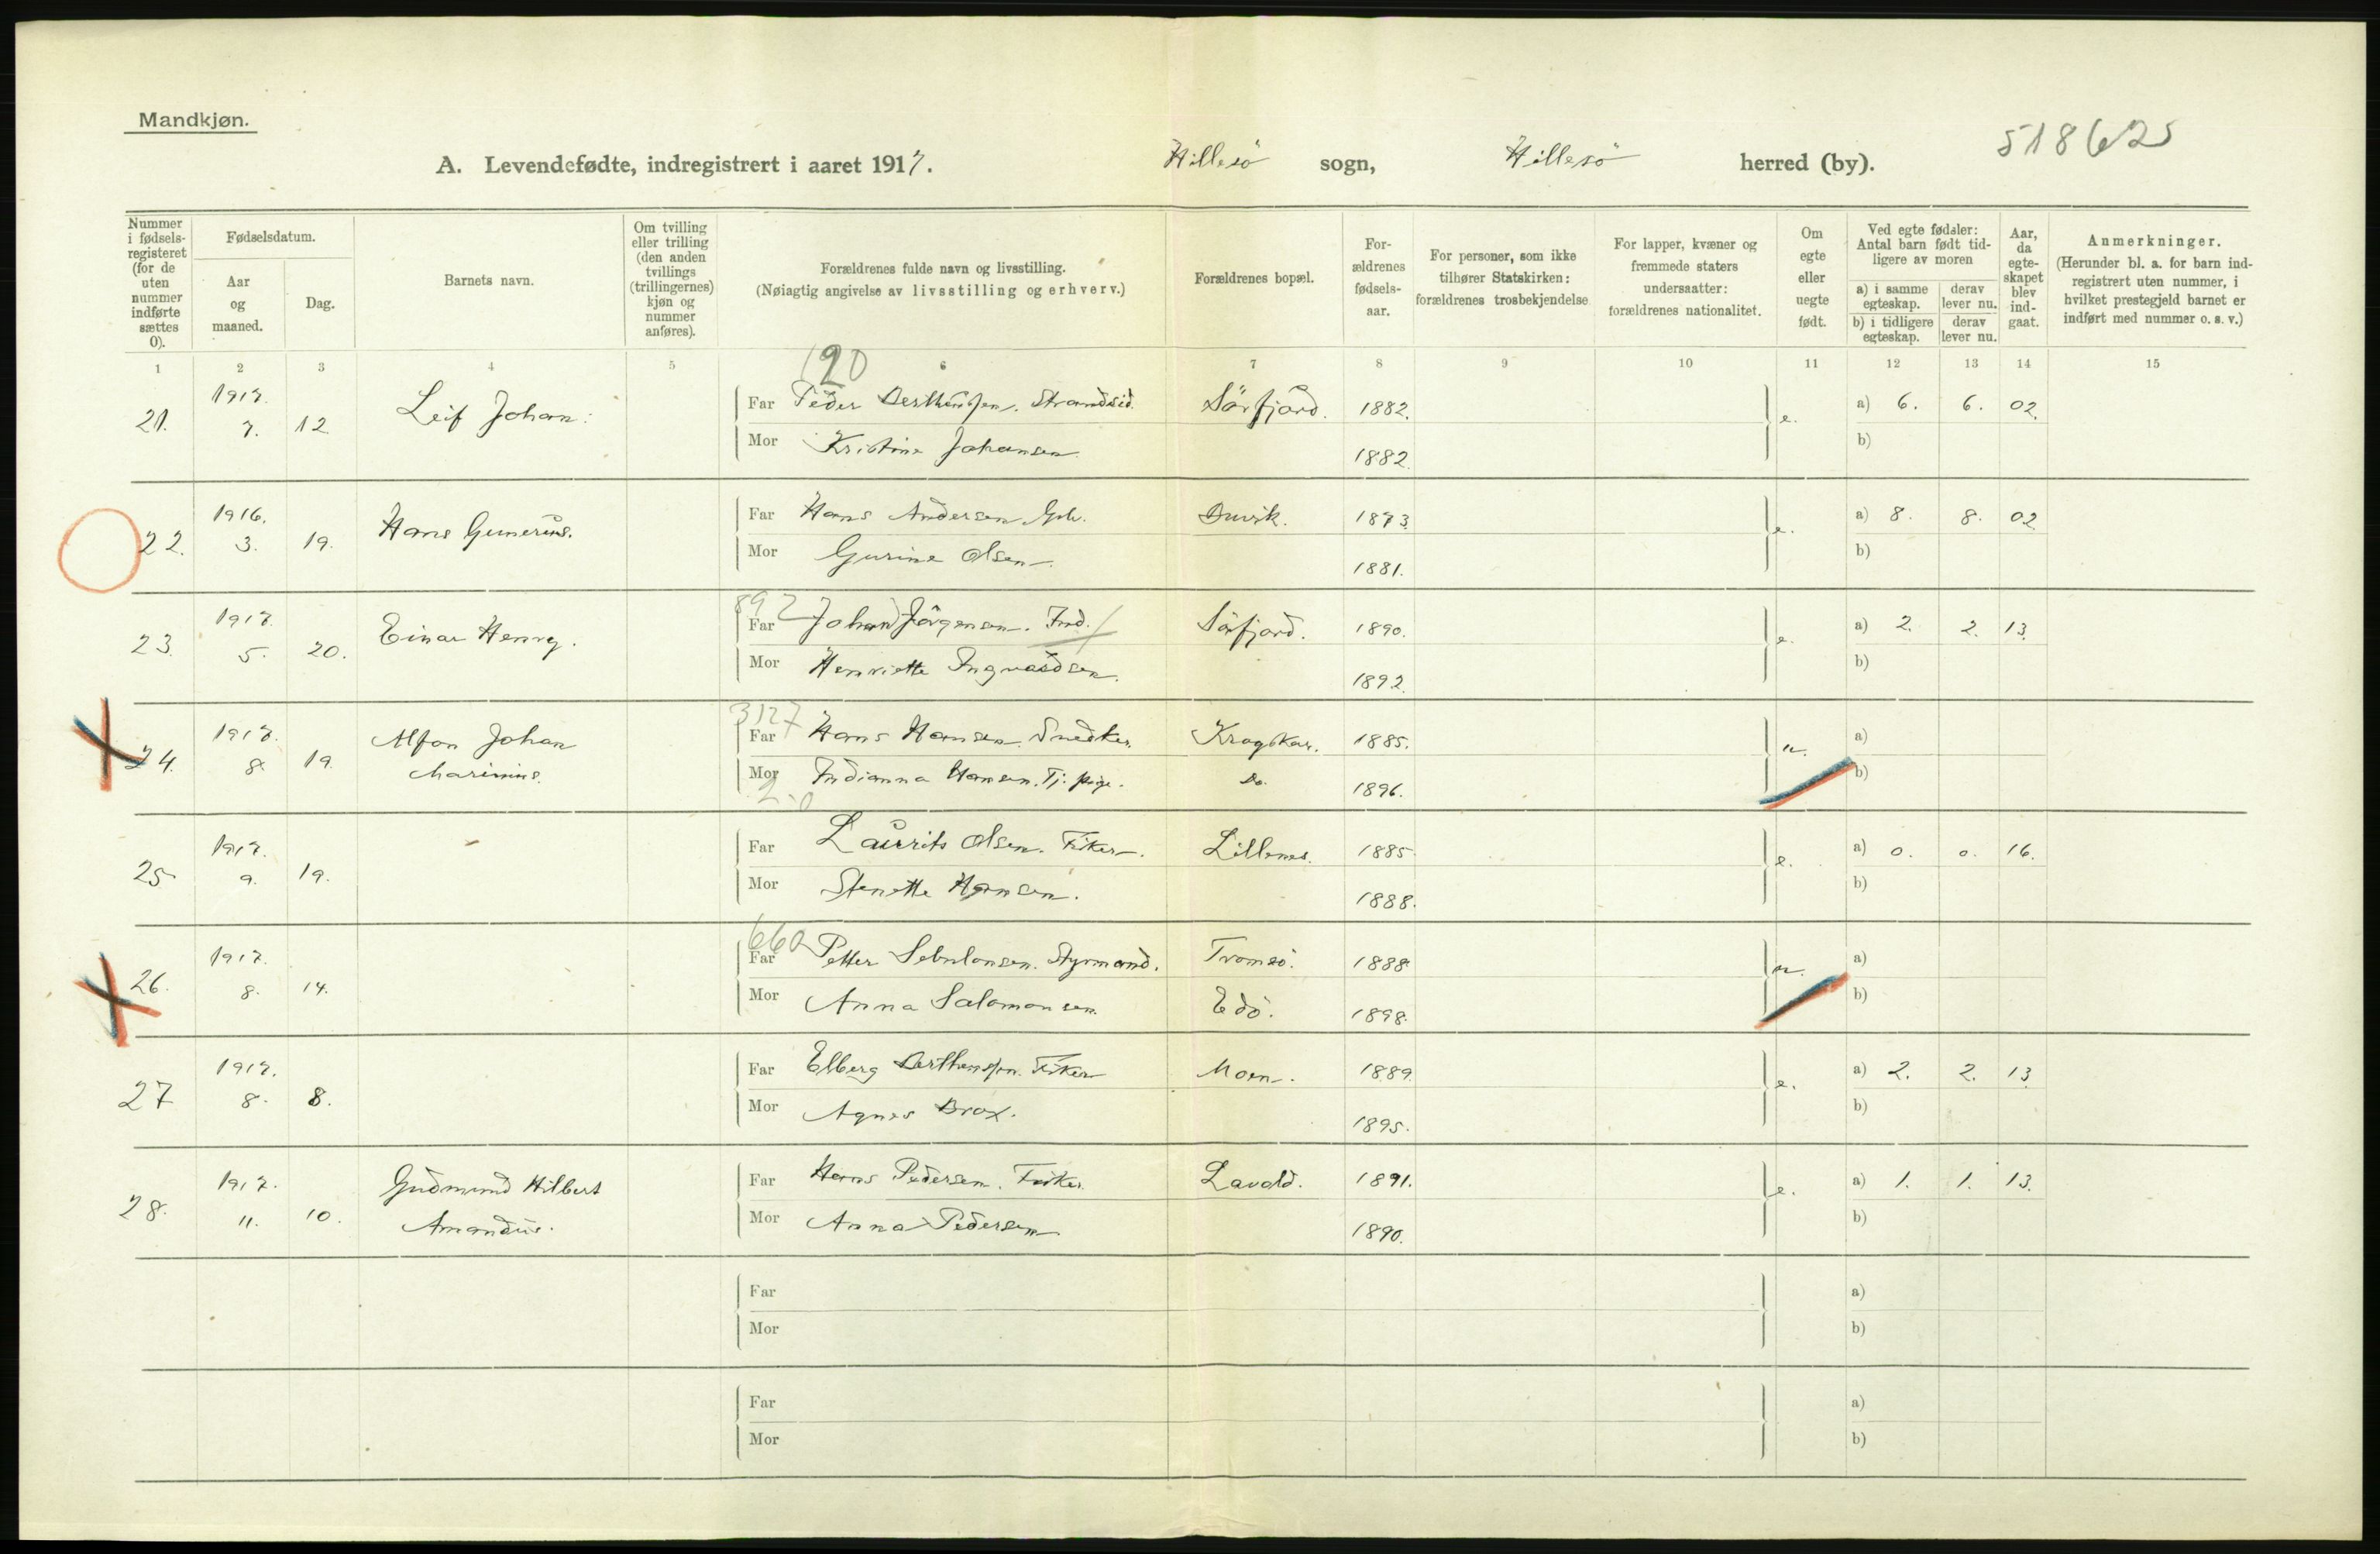 Mandkjøn.
518625
A. Levendefødte, indregistrert i aaret 1917. Hillesö sogn, Hillesö herred (by).
Nummer i fødsels-registeret (for de uten nummer indførte sættes 0).
Fødselsdatum.
Aar og maaned.
Dag.
Barnets navn.
Om tvilling eller trilling (den anden tvillings (trillingernes) kjøn og nummer anføres).
Forældrenes fulde navn og livsstilling.
(Nøiagtig angivelse av livsstilling og erhverv.)
Forældrenes bopæl.
For-ældrenes fødsels-aar.
For personer, som ikke tilhører Statskirken: forældrenes trosbekjendelse
For lapper, kvæner og fremmede staters undersaatter: forældrenes nationalitet.
Om egte eller uegte født.
Ved egte fødsler: Antal barn født tid-ligere av moren
a) i samme egteskap. derav lever nu.
b) i tidligere egteskap. derav lever nu.
Aar, da egte-skapet blev ind-gaat.
Anmerkninger.
(Herunder bl. a. for barn ind-registrert uten nummer, i hvilket prestegjeld barnet er indført med nummer o. s. v.)
1 2 3 4 5 6 7 8 9 10 11 12 13 14 15
120
21. 1917. 7. 12. Leif Johan. Far Peder Berthensen. Strandsid. Sörfjord. 1882. e. a) 6. 6. 02.
Mor Kristine Johansen. 1882. b)
22. 1916. 3. 19. Hans Gunerius. Far Hans Andersen Gbr. Buvik. 1873. e. a) 8. 8. 02
Mor Gurine Olsen. 1881. b)
892
23. 1917. 5. 20. Einar Henry. Far Johan Jörgensen. Ind. Sörfjord. 1890. e. a) 2. 2. 13.
Mor Henriette Ingvardsen. 1892. b)
3127
24. 1917. 8. 19. Alfon Johan Marinius. Far Hans Hansen. Snedker. Kragskar. 1885. u. a)
Mor Indianna Hansen. Tj. pige. Do. 1896. b)
25 1917. 9. 19. Far Laurits Olsen. Fisker. Lillenes. 1885. e. a) 0. 0. 16.
Mor Stenette Hansen. 1888. b)
660
26. 1917. 8. 14. Far Petter Sebulonsen. Styrmand. Tromsö. 1888. u. a)
Mor Anna Salomonsen. Edö. 1898. b)
27 1917. 8. 8. Far Elberg Berthensen. Fisker Moen. 1889. e. a) 2. 2. 13.
Mor Agnes Brox. 1895. b)
28. 1917. 11. 10. Gudmund Hilbert Amandus. Far Hans Pedersen. Fisker. Lavold. 1891. e. a) 1. 1. 13.
Mor Anna Pedersen 1890. b)
Far a)
Mor b)
Far a)
Mor b)